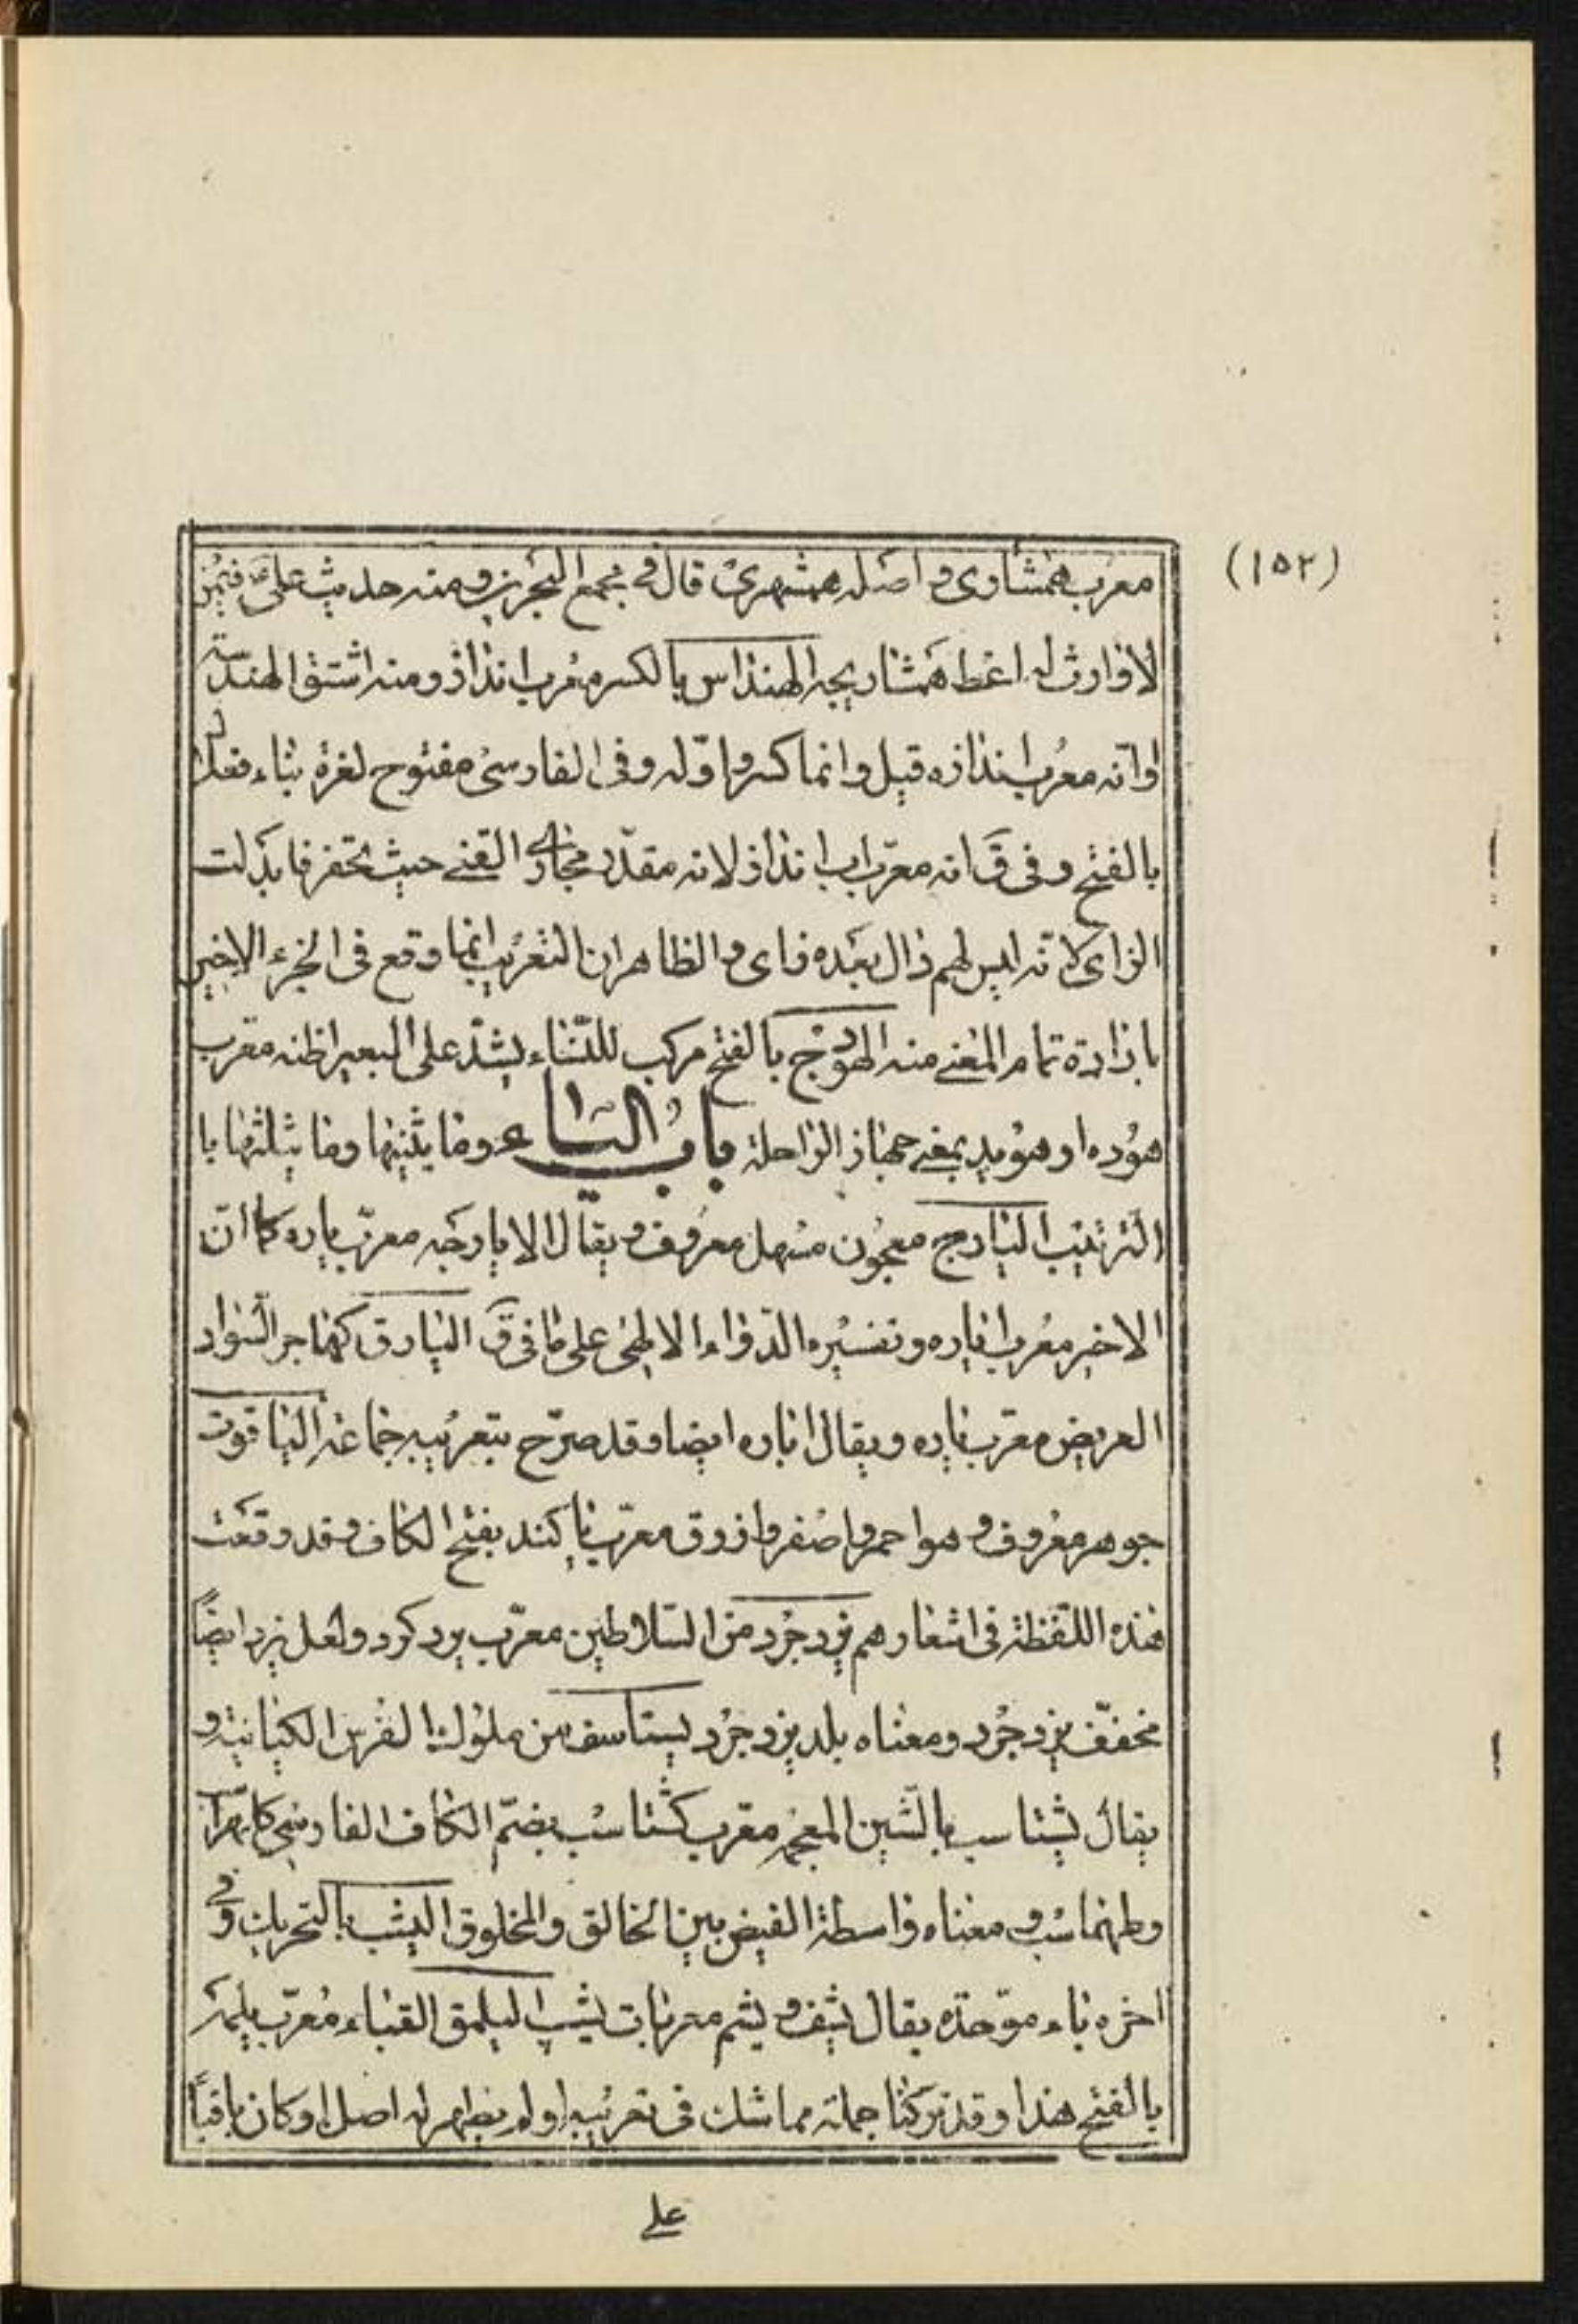 (١٥٢)
معرب همشاوى و اصله همشهرى قال فى مجمع البحرين و منه حديث على فيمن
لا وارث له اعط همشاريجه الهنداس بالكسر معرب انداز و منه اشتق الهندسة
او انه معرب اندازه قيل و انما كسر و اوله و فى الفارسى مفتوح لغرة بناء فعلال
بالفتح و فى ق انه معرب اب انداز لانه مقدر مجارى القنى حيث تحفر فابدلت
الزاى لانه ليس لهم دال بعده زاى و الظاهر ان التعريب انما وقع فى الجزء الاخير
بارادة تمام المعنى منه الهودج بالفتح مركب للنساء يشد على البعير اظنه معرب
هوده او هويد بمعنى جهاز الراحلة باب الياء و ما يثنيها و ما يثلثها با
الترتيب اليارج معجون مسهل معروف و يقال الايارجه معرب ياره كما ان
الاخير معرب اياره و تفسيره الدواء الالهى على ما فى ق اليارق كهاجر السوار
العريض معرب ياره و يقال اياره ايضا و قد صرح بتعريبه جماعة الياقوت
جوهر معروف و هو احمر و اصفر و ازرق معرب ياكند بفتح الكاف و قد وقعت
هذه اللفظة فى اشعارهم يزدجرد من السلاطين معرب يزدكرد و لعل يزد ايضاً
مخفف يزدجرد و معناه بلد يزدجرد يستاسف من ملوك الفرس الكيانية و
يقال يشتاسب بالشين المعجمه معرب كشتاسب بضم الكاف الفارسى كلهراسب
و طهماسب و معناه واسطة الفيض بين الخالق و المخلوق اليشب بالتحريك و فى
اخره باء موحدة يقال يشف و يشم معربات يشپ اليلمق القباء معرب يلمه
بالفتح هذا و قد تركنا جملة مما شك فى تعريبه او لم يظهر له اصل او كان باقياً
على